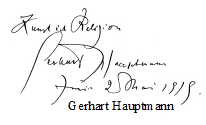 Kunst ist Religion
Gerhart Hauptmann
25 Mai 1919.
Gerhart Hauptmann